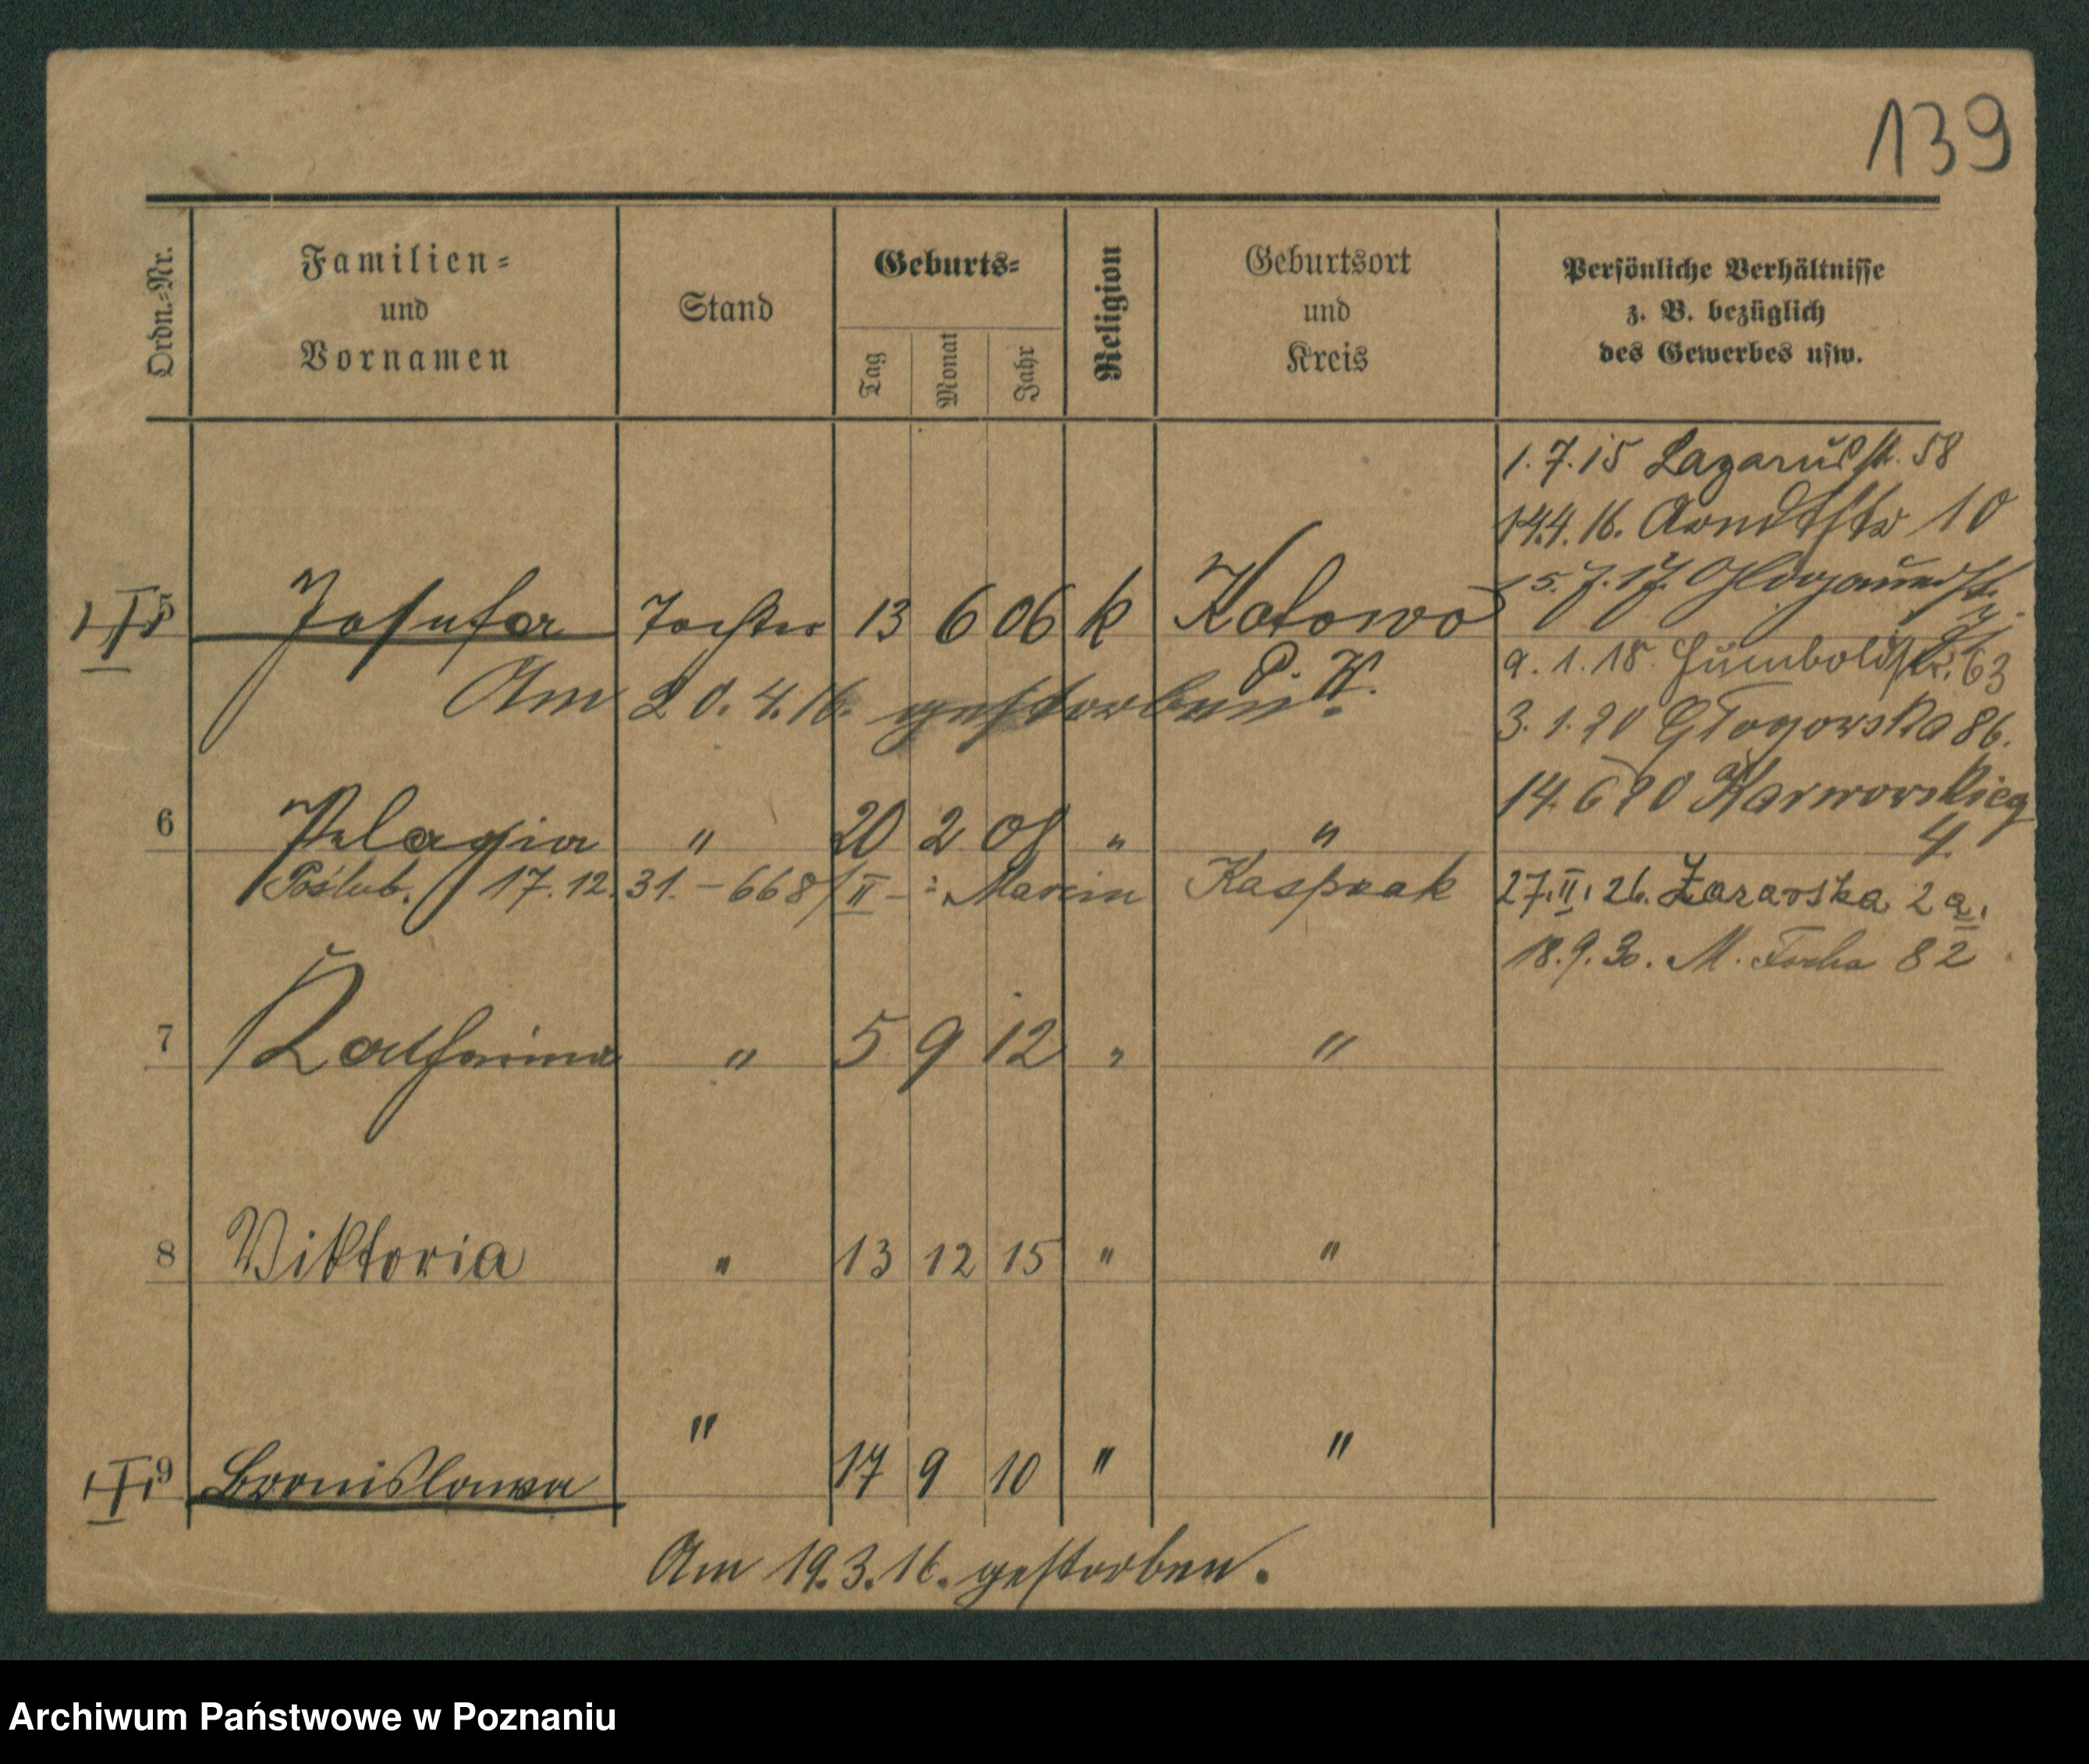 139
Ordn.-Nr.
Familien-
und
Vornamen
Stand
Geburts-
Tag
Monat
Jahr
Religion
Geburtsort
und
Kreis
Persönliche Verhältnisse
z. B. bezüglich
des Gewerbes usw.
1.7.15 Lazarusstr. 58
14.4.16. Arndtstr 10
5.7.17. Glogauerstr.
5 Josefa Tochter 13 6 06 k Kotowo
P. W.
1.18 Humboldtstr. 63
Am 20.4.16. gestorben.
3.1.20 Głogowska 86.
14.6 20 Karwowskieg
4.
6 Pelagia " 20 2 08 " "
Poślub. 17.12.31. – 668/II – : Marcin Kasprzak
27.II.26. Lazarska 2a.
18.9.30. M. Focha 82
7 Katharina " 5 9 12 " "
8 Viktoria " 13 12 15 " "
9 Bronislawa " 17 9 10 " "
Am 19.3.16. gestorben.
Archiwum Państwowe w Poznaniu